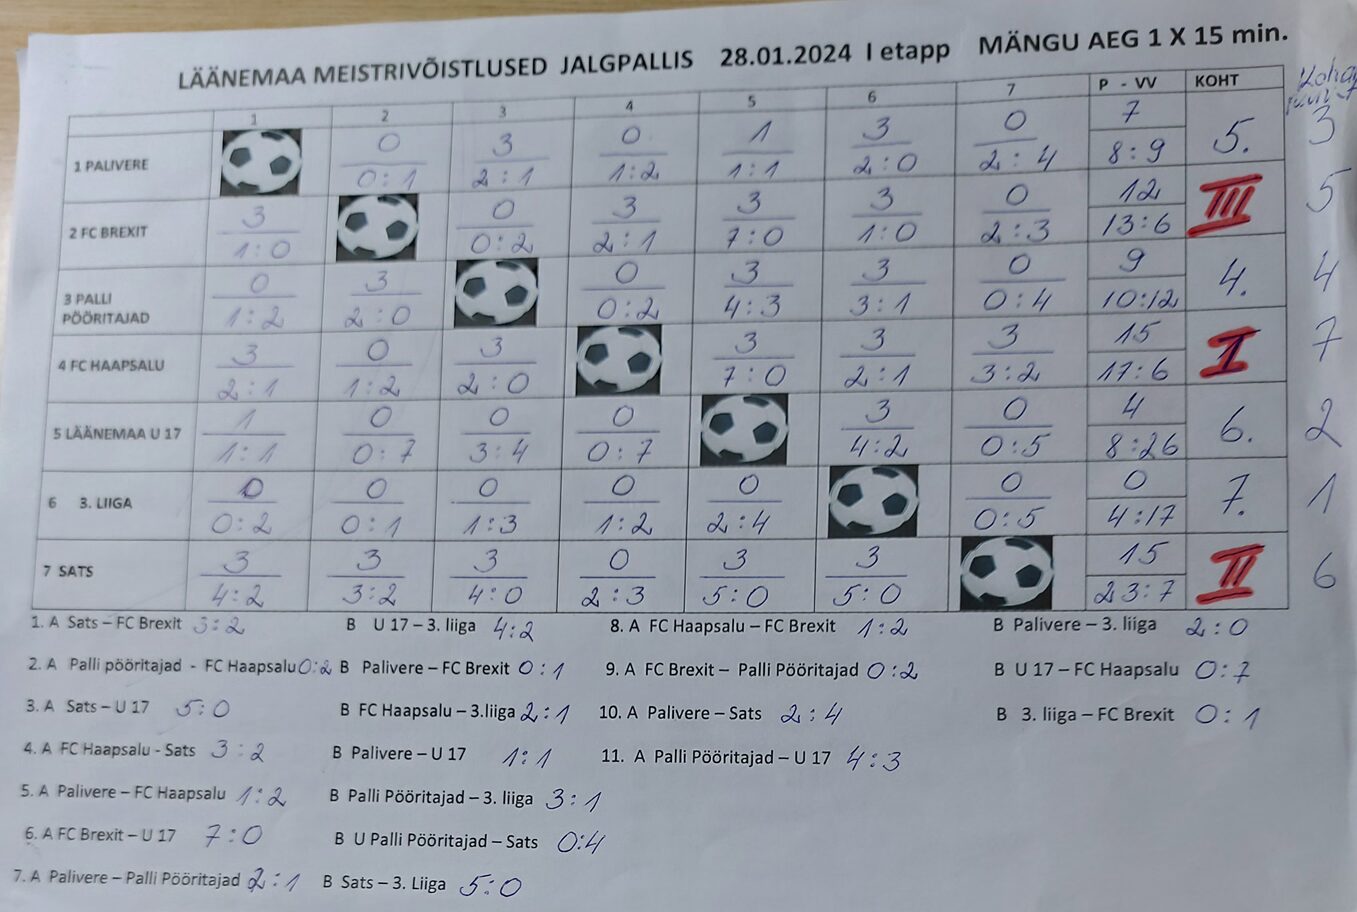 LÄÄNEMAA MEISTRIVÕISTLUSED JALGPALLIS 28.01.2024 I etapp MÄNGU AEG 1 X 15 min.
1 2 3 4 5 6 7 P - VV KOHT
0 3 0 1 3 0 7
1 PALIVERE 0:1 2:1 1:2 1:1 2:0 2:4 8:9 5. 3
3 0 3 3 3 0 12
2 FC BREXIT 1:0 0:2 2:1 7:0 1:0 2:3 13:6 III 5
0 3 0 3 3 0 9
3 PALLI PÖÖRITAJAD 1:2 2:0 0:2 4:3 3:1 0:4 10:12 4. 4
3 0 3 3 3 3 15
4 FC HAAPSALU 2:1 1:2 2:0 7:0 2:1 3:2 17:6 I 7
1 0 0 0 3 0 4
5 LÄÄNEMAA U 17 1:1 0:7 3:4 0:7 4:2 0:5 8:26 6. 2
0 0 0 0 0 0 0
6 3. LIIGA 0:2 0:1 1:3 1:2 2:4 0:5 4:17 7. 1
3 3 3 0 3 3 15
7 SATS 4:2 3:2 4:0 2:3 5:0 5:0 23:7 II 6
1. A Sats – FC Brexit 3:2 B U 17 – 3. liiga 4:2 8. A FC Haapsalu – FC Brexit 1:2 B Palivere – 3. liiga 2:0
2. A Palli pööritajad - FC Haapsalu 0:2 B Palivere – FC Brexit 0:1 9. A FC Brexit – Palli Pööritajad 0:2 B U 17 – FC Haapsalu 0:7
3. A Sats – U 17 5:0 B FC Haapsalu – 3.liiga 2:1 10. A Palivere – Sats 2:4 B 3. liiga – FC Brexit 0:1
4. A FC Haapsalu - Sats 3:2 B Palivere – U 17 1:1 11. A Palli Pööritajad – U 17 4:3
5. A Palivere – FC Haapsalu 1:2 B Palli Pööritajad – 3. liiga 3:1
6. A FC Brexit – U 17 7:0 B U Palli Pööritajad – Sats 0:4
7. A Palivere – Palli Pööritajad 2:1 B Sats – 3. Liiga 5:0